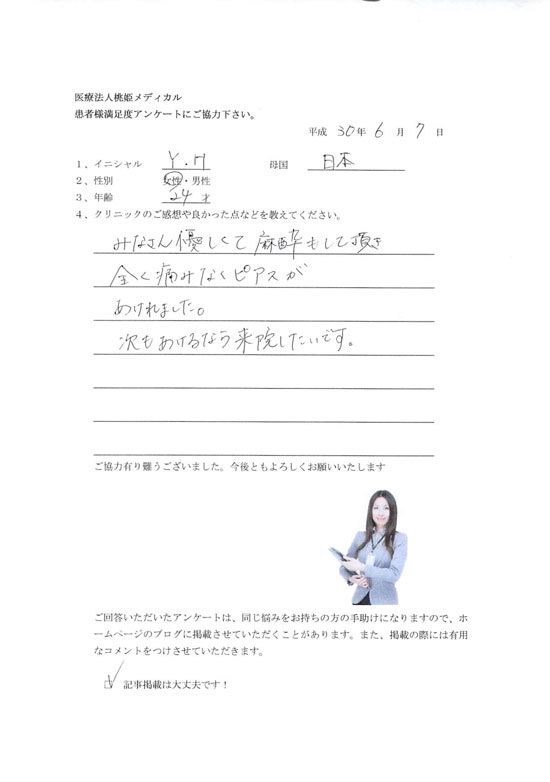 医療法人桃姫メディカル
患者様満足度アンケートにご協力下さい。
平成 30年 6 月 7 日
1、イニシャル Y.H 母国 日本
2、性別 女性・男性
3、年齢 24 才
4、クリニックのご感想や良かった点などを教えてください。
みなさん優しくて麻酔もして頂き
全く痛みなくピアスが
あけれました。
次もあけるなら来院したいです。
ご協力有り難うございました。今後ともよろしくお願いいたします
ご回答いただいたアンケートは、同じ悩みをお持ちの方の手助けになりますので、ホ
ームページのブログに掲載させていただくことがあります。また、掲載の際には有用
なコメントをつけさせていただきます。
☑ 記事掲載は大丈夫です！